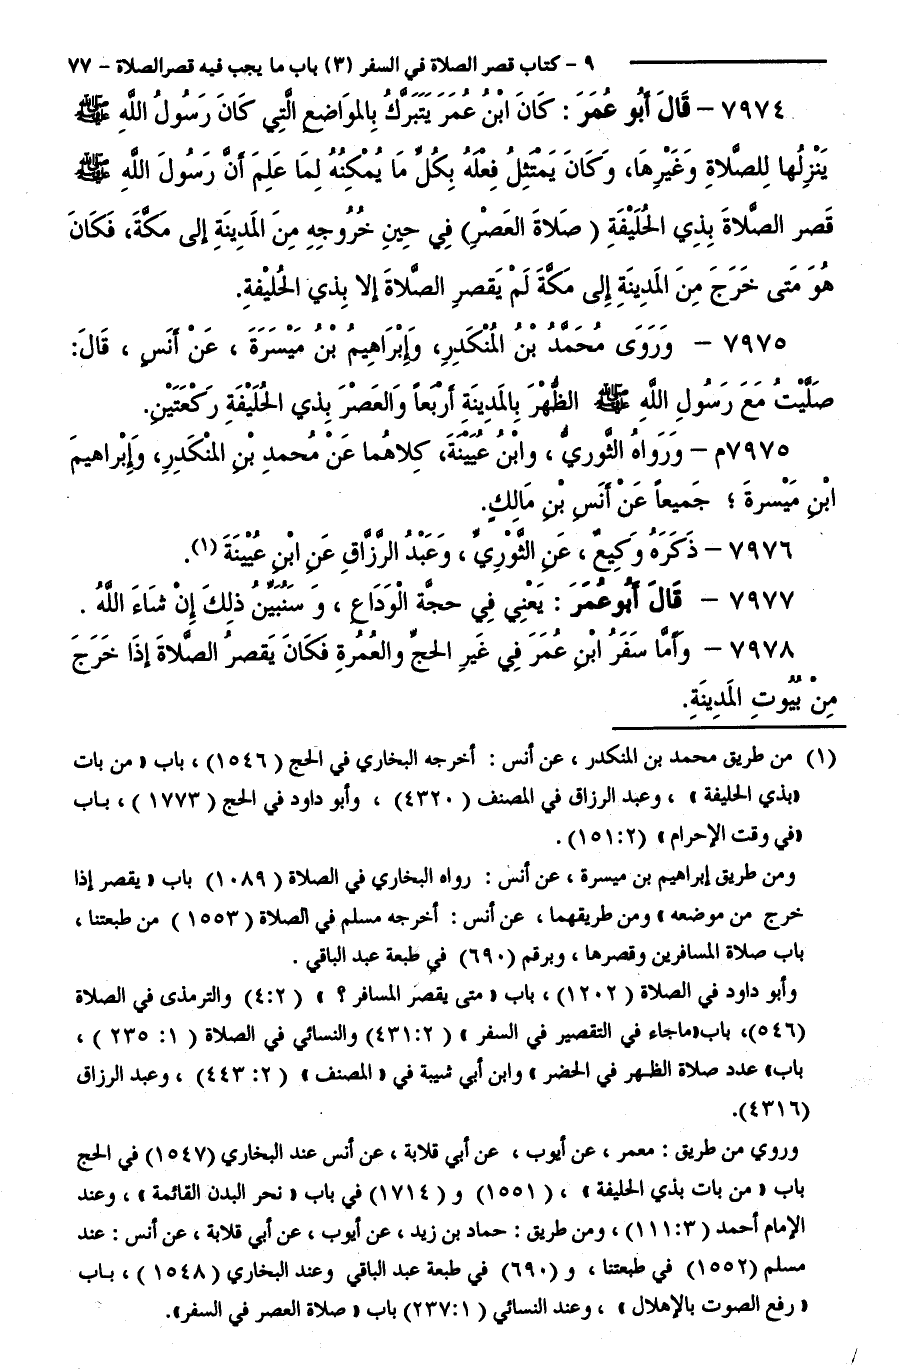 ٩ – كتاب قصر الصلاة في السفر (٣) باب ما يجب فيه قصر الصلاة – ٧٧
٧٩٧٤ – قَالَ أَبُو عُمَرَ : كَانَ ابْنُ عُمَرَ يَتَبَرَّكُ بِالمَوَاضِعِ الَّتِي كَانَ رَسُولُ اللَّهِ ﷺ
يَنْزِلُها لِلصَّلاةِ وَغَيْرِهَا، وَكَانَ يَمْتَثِلُ فِعْلَهُ بِكُلِّ مَا يُمْكِنُهُ لِمَا عَلِمَ أَنَّ رَسُولَ اللَّهِ ﷺ
قَصر الصَّلاةَ بِذِي الحُلَيْفَةِ ( صَلاةَ العَصْرِ) فِي حينِ خُرُوجِهِ مِنَ المَدِينَةِ إِلى مكَّةَ، فَكَانَ
هُوَ مَتَى خَرَجَ مِنَ المَدِينَةِ إِلى مَكَّةَ لَمْ يَقصر الصَّلاةَ إلا بِذي الحُليْفةِ.
٧٩٧٥ – وَرَوَى مُحَمَّدُ بْنُ المُنْكَدِرِ، وَإِبْرَاهِيمُ بْنُ مَيْسَرَةَ ، عَنْ أَنَسٍ ، قَالَ:
صَلَّيْتُ مَعَ رَسُولِ اللَّهِ ﷺ الظُّهْرَ بِالمَدِينَةِ أَرْبَعاً وَالعَصْرَ بِذي الحُلَيفَةِ رَكْعَتَيْنِ.
٧٩٧٥م – وَرَوَاهُ الثَّورِيُّ ، وَابْنُ عُيَيْنَةَ، كِلاهُما عَنْ مُحمدِ بْنِ المُنْكَدِرِ، وَإِبْراهيمَ
ابْنِ مَيْسرةَ ؛ جَميعاً عَنْ أَنَسِ بْنِ مَالِكٍ.
٧٩٧٦ – ذَكَرَهُ وَكِيعٌ ، عَنِ الثَّوْرِيِّ ، وَعَبْدُ الرَّزَّاقِ عَنِ ابْنِ عُيَيْنَةَ (١).
٧٩٧٧ – قَالَ أَبُو عُمَرَ : يَعْنِي فِي حجَّةِ الْوَدَاعِ ، وَ سَنُبَيِّنُ ذلِكَ إِنْ شَاءَ اللَّهُ .
٧٩٧٨ – وَأَمَّا سَفَرُ ابْنِ عُمَرَ فِي غَيرِ الحجِّ والعُمْرةِ فَكَانَ يَقصرُ الصَّلاةَ إِذَا خَرَجَ
مِنْ بُيُوتِ المَدِينَةِ.
(١) من طريق محمد بن المنكدر ، عن أنس : أخرجه البخاري في الحج ( ١٥٤٦) ، باب « من بات
«بذي الحليفة » ، وعبد الرزاق في المصنف ( ٤٣٢٠) ، وأبو داود في الحج ( ١٧٧٣ ) ، بـاب
«في وقت الإحرام » (١٥١:٢).
ومن طريق إبراهيم بن ميسرة ، عن أنس : رواه البخاري في الصلاة ( ١٠٨٩) باب « يقصر إذا
خرج من موضعه » ومن طريقهما ، عن أنس : أخرجه مسلم في الصلاة ( ١٥٥٣ ) من طبعتنا ،
باب صلاة المسافرين وقصرها ، وبرقم (٦٩٠) في طبعة عبد الباقي .
وأبو داود في الصلاة ( ١٢٠٢) ، باب « متى يقصر المسافر ؟ » ( ٤:٢) والترمذى في الصلاة
(٥٤٦)، باب«ماجاء في التقصير في السفر » ( ٤٣١:٢) والنسائي في الصلاة ( ١: ٢٣٥ ) ،
باب» عدد صلاة الظـهر في الحضر » وابن أبي شيبة في « المصنف » ( ٢: ٤٤٣) ، وعبد الرزاق
(٤٣١٦).
وروي من طريق : معمر ، عن أيوب ، عن أبي قلابة ، عن أنس عند البخاري (١٥٤٧) في الحج
باب « من بات بذي الحليفة » ، ( ١٥٥١) و ( ١٧١٤) في باب « نحر البدن القائمة » ، وعند
الإمام أحمد ( ١١١:٣) ، ومن طريق : حماد بن زيد ، عن أيوب ، عن أبي قلابة ، عن أنس : عند
مسلم (١٥٥٢) في طبعتنا ، و (٦٩٠) في طبعة عبد الباقي وعند البخاري ( ١٥٤٨ ) ، بـاب
« رفع الصوت بالإهلال » ، وعند النسائي ( ٢٣٧:١) باب « صلاة العصر في السفر».